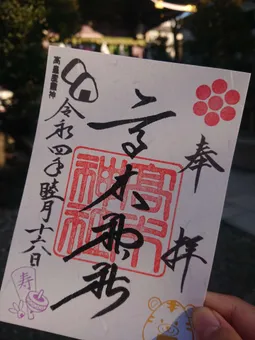 奉拝
高木神社
高木神社
高皇産靈神
令和四年睦月十六日
寿